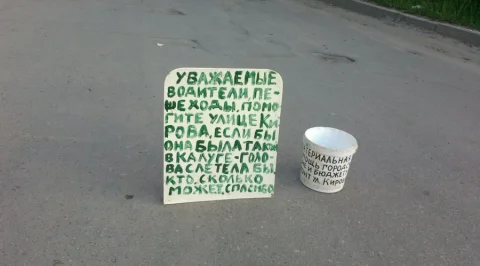 УВАЖАЕМЫЕ
ВОДИТЕЛИ, ПЕ-
ШЕХОДЫ, ПОМО
ГИТЕ УЛИЦЕ КИ
РОВА, ЕСЛИ БЫ
ОНА БЫЛА ТАКОЙ
В КАЛУГЕ-ГОЛО-
ВА СЛЕТЕЛА БЫ,
КТО, СКОЛЬКО
МОЖЕТ, СПАСИБО
ТЕРИАЛЬНАЯ
ОЩЬ ГОРОДС
БЮДЖЕТ